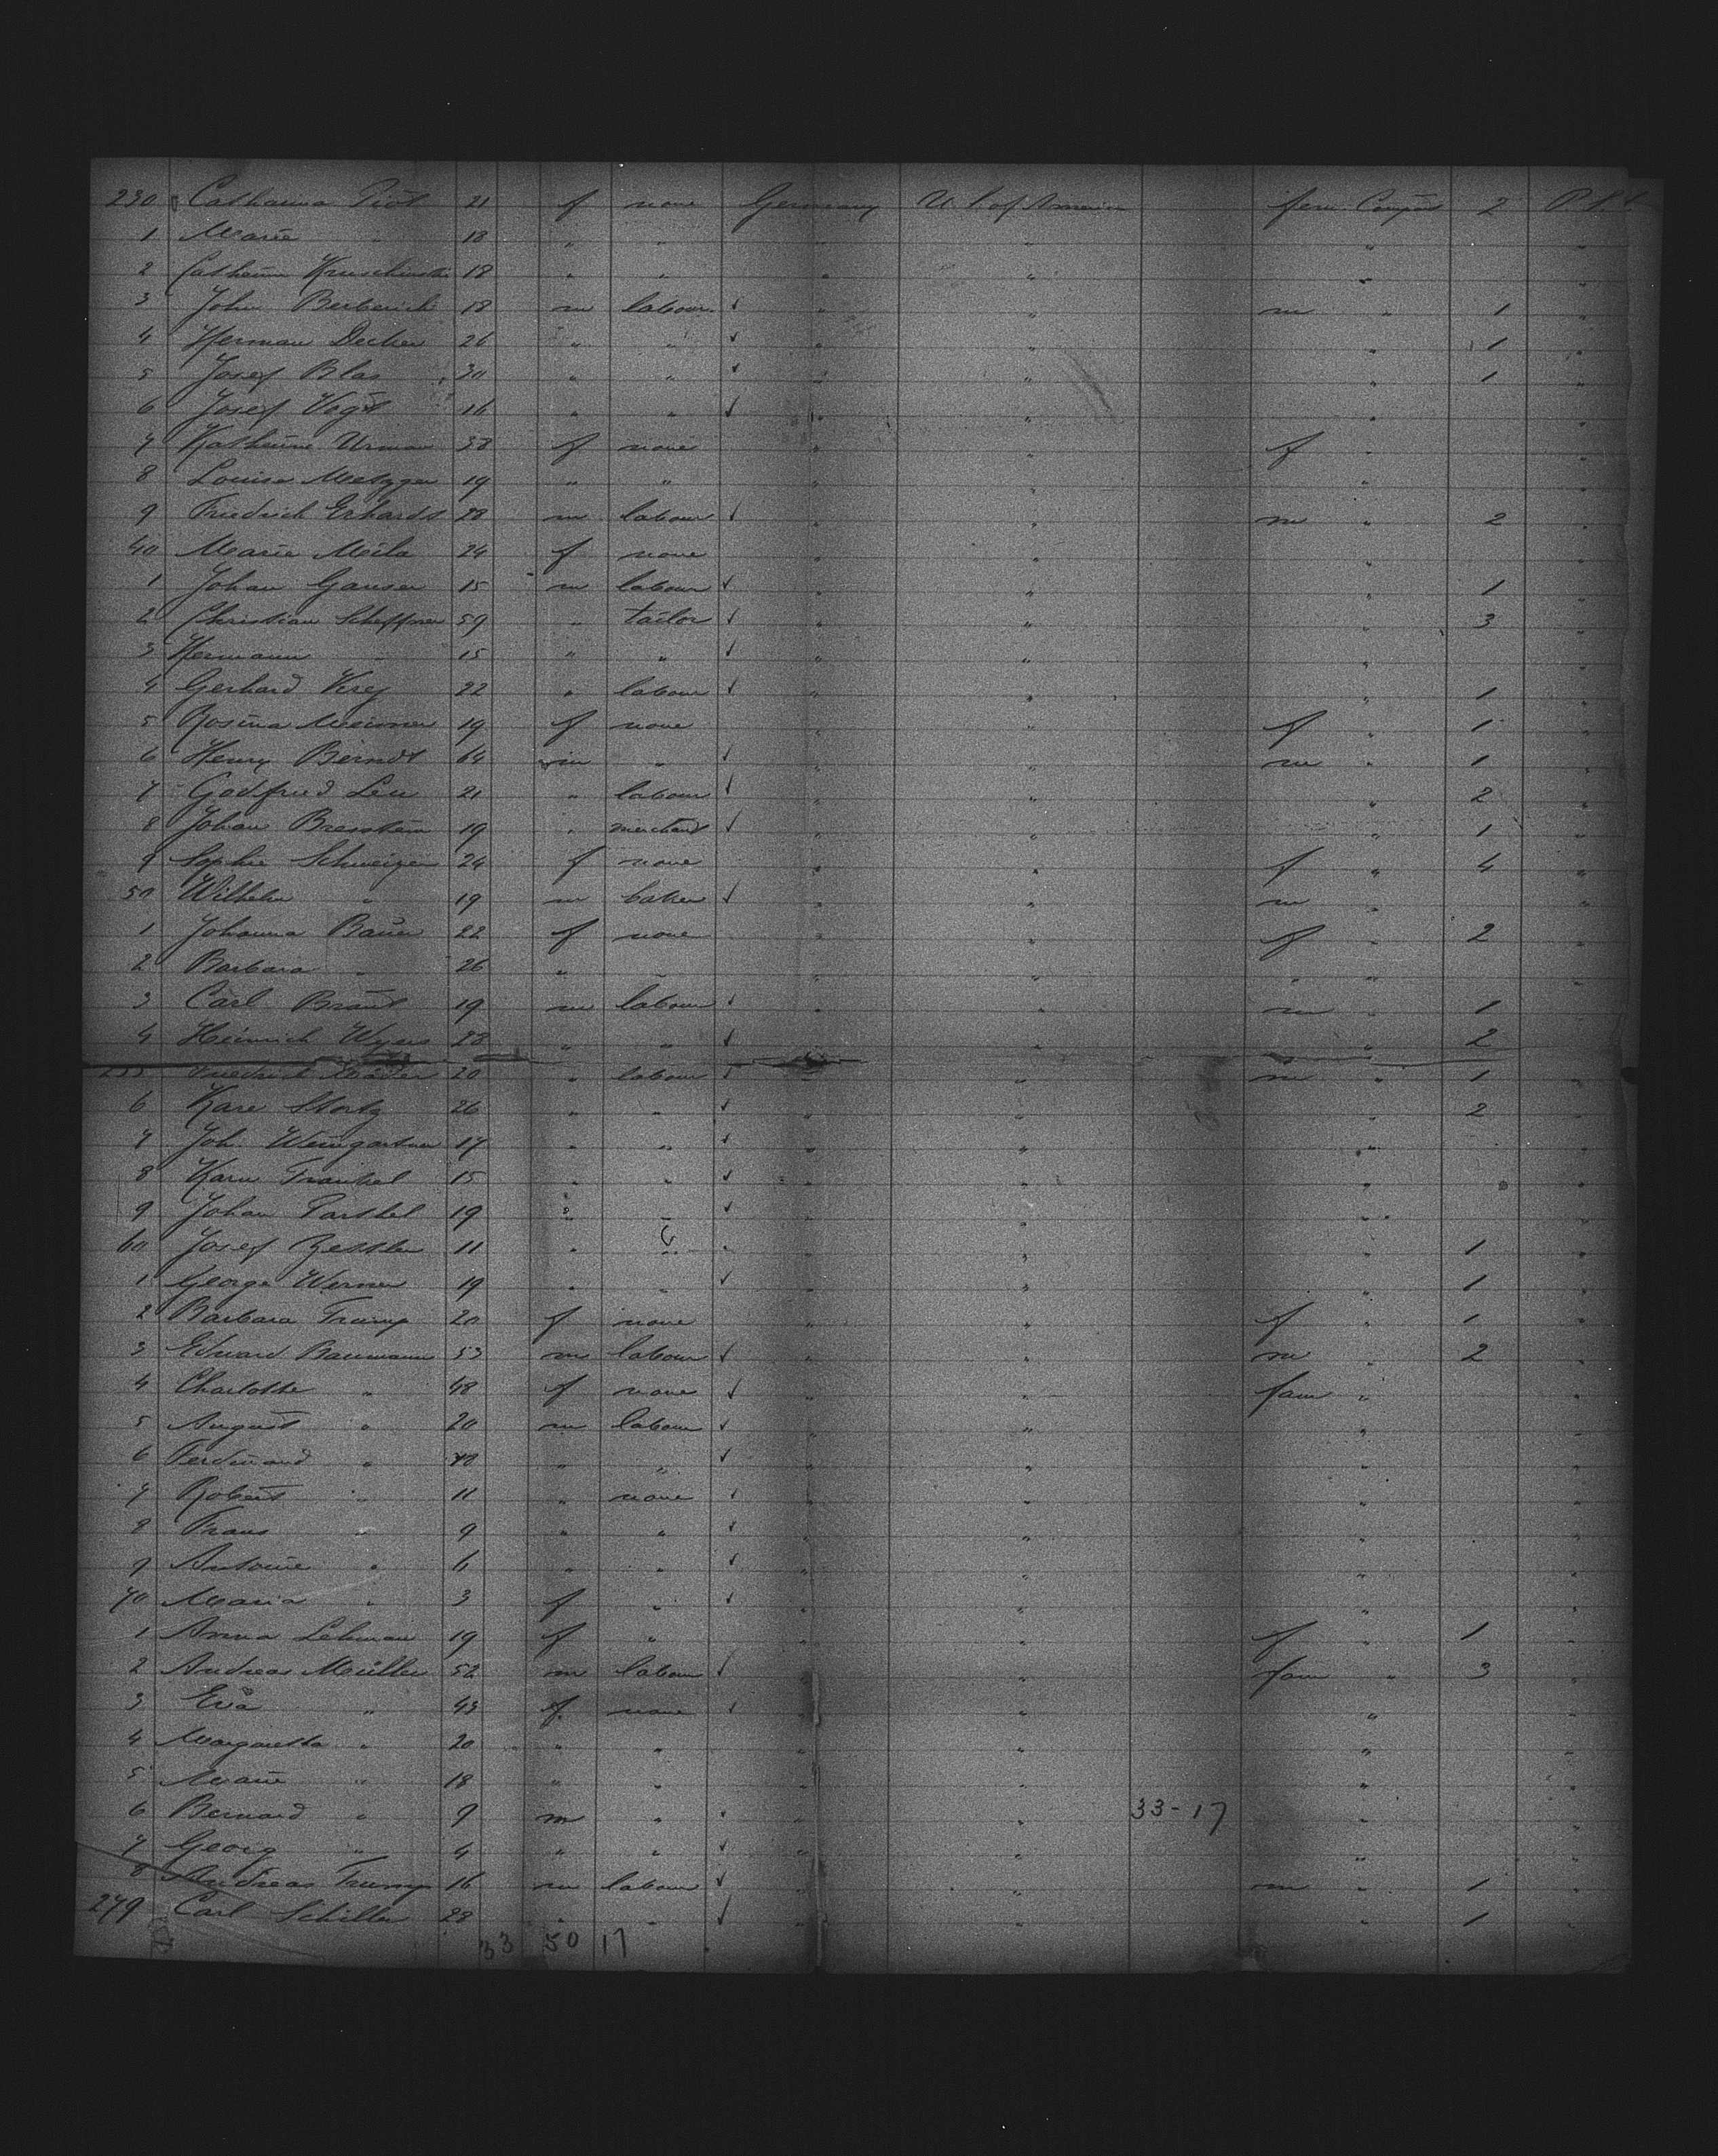 230 Catharina Piot 21 f none Germany U.S. of America fem. Compart 2
1 Marie " 18 " " " " "
2 18 " " " " "
3 John Berberich 18 m labour ✓ " " m " 1 "
4 Herman Decker 26 " " ✓ " " " 1 "
5 Josef Blas 30 " " ✓ " " " 1 "
6 Josef Vogt 16 " " ✓ " " " "
7 Katharine Urman 38 f none " " f " "
8 Louise Metzger 19 " " " " " "
9 Friedrich Erhardt 28 m labour ✓ " " m " 2 "
40 Marie Meila 24 f none " " " "
1 Johan Ganser 15 m labour ✓ " " " 1 "
2 Christian Scheffner 59 " tailor ✓ " " " 3 "
3 Hermann " 15 " " ✓ " " " "
4 Gerhard Krej 22 " labour ✓ " " " 1 "
5 Rosina 19 f none " " f " 1 "
6 Henry Berndt 64 m " ✓ " " m " 1 "
7 Godfried Leu 21 " labour ✓ " " " 2 "
8 Johan Bresstein 19 " merchant ✓ " " " 1 "
9 Sophie Schweizer 24 f none " " f " 4 "
50 Wilhelm " 19 m baker ✓ " " m " "
1 Johanna Bauer 22 f none " " f " 2 "
2 Barbara " 26 " " " " " " "
3 Carl Braut 19 m labour ✓ " " m " 1 "
4 Heinrich Wyers 28 " " ✓ " " " 2
255 Friedrich 20 " labour ✓ " m " 1 "
6 26 " " ✓ " " " 2 "
7 Joh. Weingartner 17 " " ✓ " " " "
8 15 " " ✓ " " " "
9 Johan 19 " " ✓ " " " "
60 Josef Zessler 11 " " " " " 1 "
1 George Werner 19 " " ✓ " " " 1 "
2 Barbara Trump 20 f none " " f " 1 "
3 Edward Baumann 53 m labour ✓ " " m " 2 "
4 Charlotte " 48 f none ✓ " " fam "
5 August " 20 m labour ✓ " " " "
6 Ferdinand " " " ✓ " " " "
7 Robert " 11 " none ✓ " " " "
8 Frans " 9 " " ✓ " " " "
9 Antonie " 6 " " ✓ " " " "
70 Maria " 3 f " ✓ " " " "
1 Anna Lehman 19 f " " " f " 1 "
2 Andreas Müller 52 m labour ✓ " " fam " 3 "
3 Eva " 43 f none ✓ " " " "
4 Margaretha " 20 " " " " " "
5 Marie " 18 " " " " " "
6 Bernard " 9 m " ✓ " " 33-17 " "
7 Georg " 4 " " ✓ " " " "
8 Andreas Trump 16 m labour ✓ " " m " 1 "
279 Carl Schiller 28 " " ✓ " " " 1 "
33 50 17